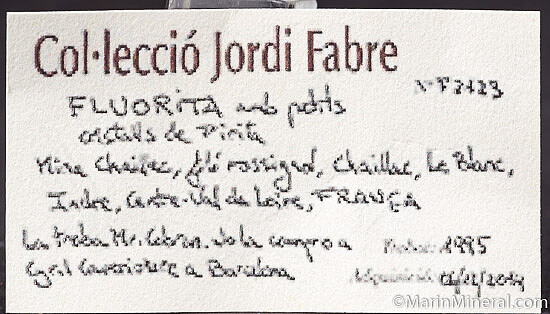 Col·lecció Jordi Fabre
FLUORITA amb petits
cristalls de Pirita
Mina Chaillac, filó rossignol, Chaillac, Le Blanc,
Indre, Centre-Val de Loire, FRANÇA
La troba Mr. Jo la compro a 1995
Cyril a Barcelona Adquisició
©MarinMineral.com